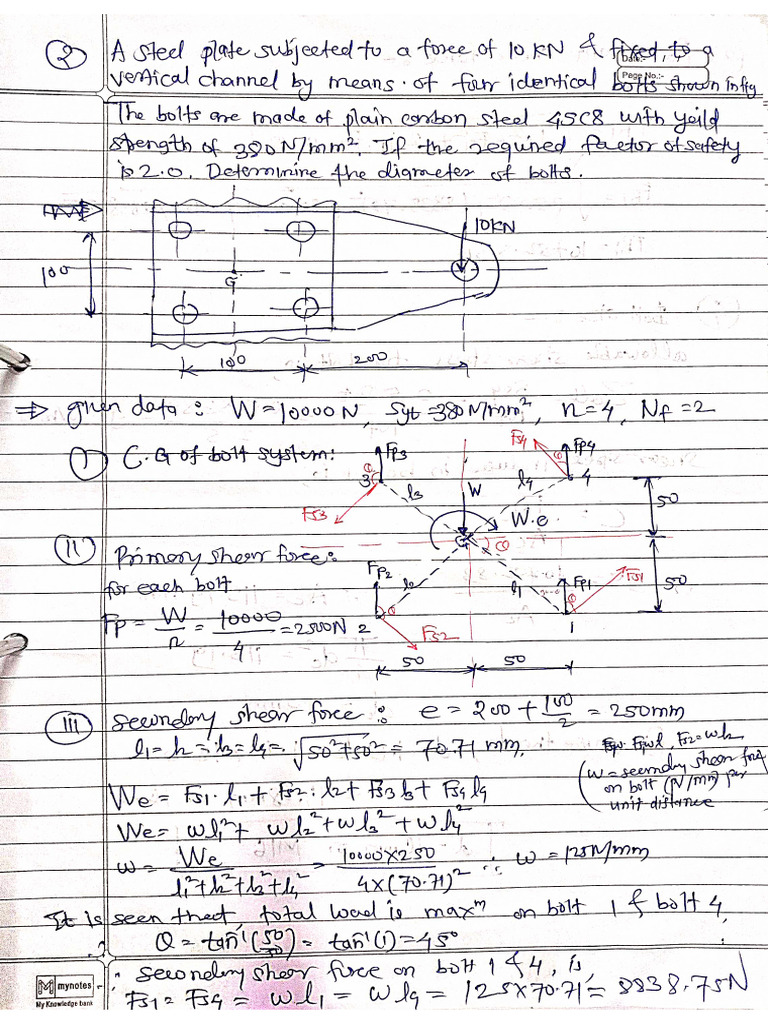 ② A steel plate subjected to a force of 10 KN & fixed, to a
vertical channel by means of four identical bolts shown in fig
Date:-
Page No.:-
The bolts are made of plain carbon steel 45C8 with yeild
strength of 380 N/mm². If the required factor of safety
is 2.0. Determine the diameter of bolts.
10KN
100
G
100
200
⇒ given data : W = 10000 N, Syt = 380 N/mm², n = 4, Nf = 2
① C.G of bolt system:
Fp3
Fs4
Fp4
θ
3
l3
l4
4
W
Fs3
W.e
50
G
θ
⑪ Primary shear force:
for each bolt
Fp2
l2
l1
Fp1
Fs1
θ
θ
50
Fp = W/n = 10000/4 = 2500N
2
Fs2
1
50
50
⑪I secondary shear force : e = 200 + 100/2 = 250mm
l1 = l2 = l3 = l4 = √50²+50² = 70.71 mm.
Fs2 = wl2
(w = secondry shear force
on bolt (N/mm) per
unit distance
We = Fs1 . l1 + Fs2 . l2 + Fs3 l3 + Fs4 l4
We = wl1² + wl2² + wl3² + wl4²
w = We/l1²+l2²+l3²+l4² = 10000×250/4×(70.71)² ∴ w = 125N/mm
It is seen that, total load is maxm on bolt 1 & bolt 4,
∴ θ = tan⁻¹(50/50) = tan⁻¹(1) = 45°
∴ secondary shear force on bolt 1 & 4, is,
Fs1 = Fs4 = wl1 = wl4 = 125×70.71 = 8838.75N
My mynotes
My Knowledge bank